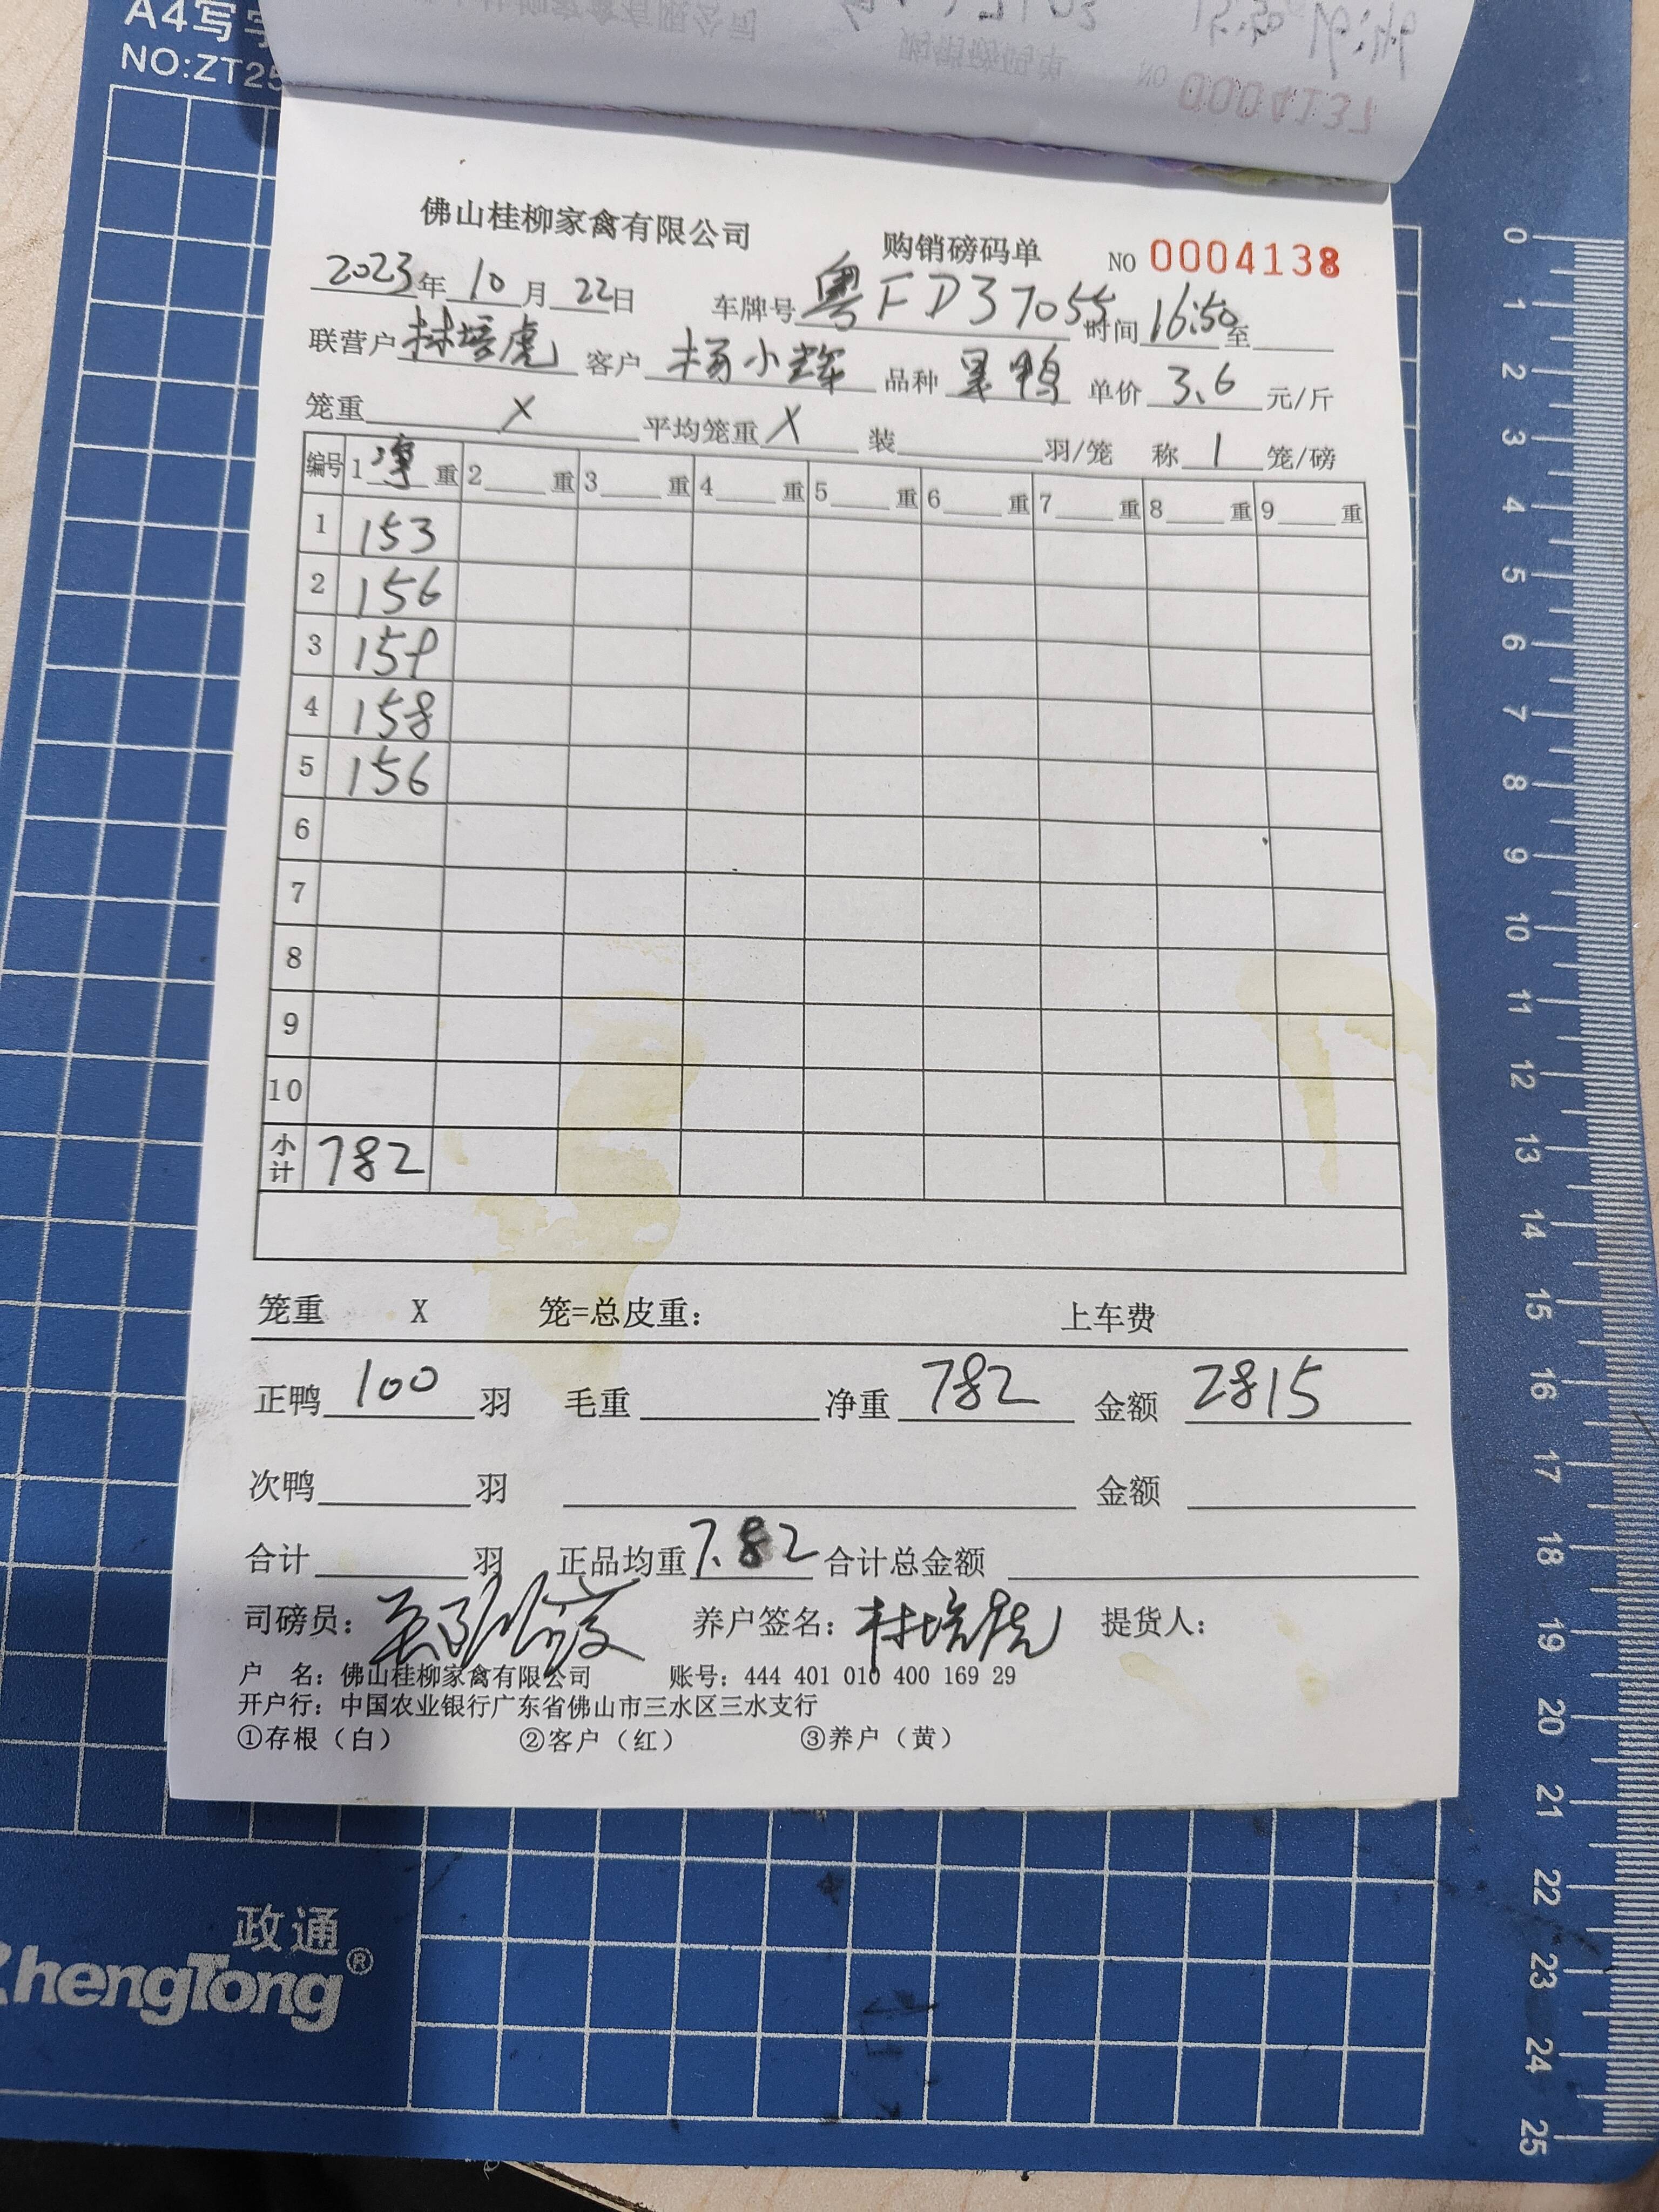 A4写字
NO:ZT25
0004137
佛山桂柳家禽有限公司 购销磅码单 NO 0004138
2023年 10 月 22日 车牌号 粤FD37055 时间 16:50 至
联营户 林培虎 客户 杨小辉 品种 黑鸭 单价 3.6 元/斤
笼重 X 平均笼重 X 装 羽/笼 称 1 笼/磅
编号 1 净 重 2 重 3 重 4 重 5 重 6 重 7 重 8 重 9 重
1 153
2 156
3 159
4 158
5 156
6
7
8
9
10
小计 782
笼重 X 笼=总皮重: 上车费
正鸭 100 羽 毛重 净重 782 金额 2815
次鸭 羽 金额
合计 羽 正品均重 7.82 合计总金额
司磅员: 养户签名: 林培虎 提货人:
户 名: 佛山桂柳家禽有限公司 账号: 444 401 010 400 169 29
开户行: 中国农业银行广东省佛山市三水区三水支行
①存根（白） ②客户（红） ③养户（黄）
政通
ZhengTong®
0
1
2
3
4
5
6
7
8
9
10
11
12
13
14
15
16
17
18
19
20
21
22
23
24
25